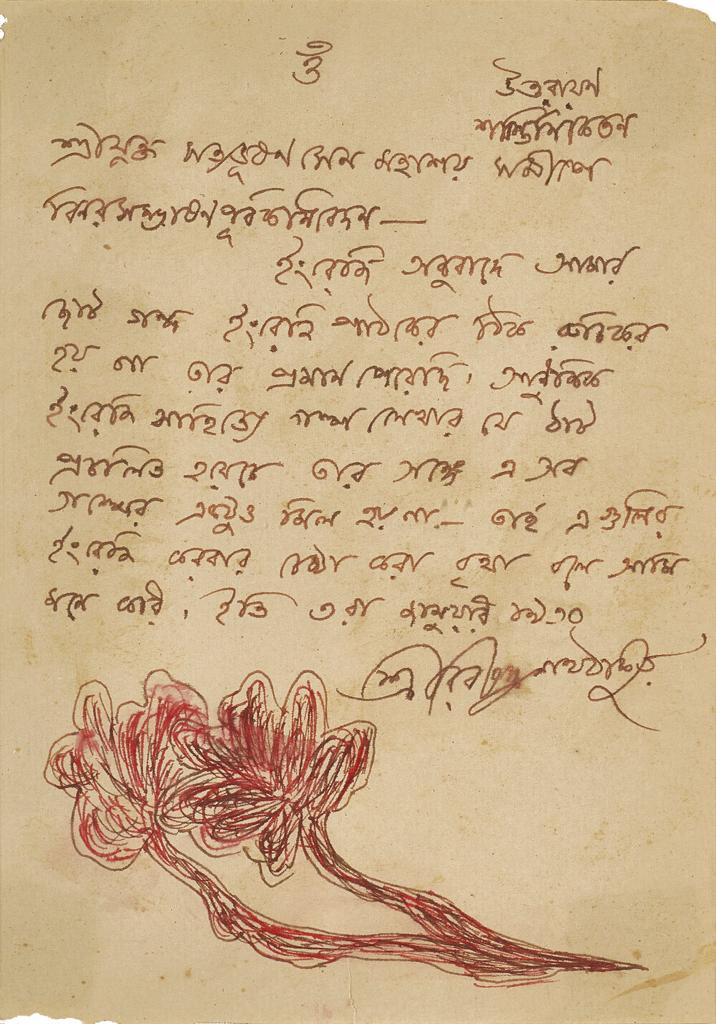 ওঁ
উত্তরায়ণ
শান্তিনিকেতন
শ্রীযুক্ত সত্যভূষণ সেন মহাশয় সমীপে
বিনয়সম্ভাষণপূর্বকনিবেদন—
ইংরেজি অনুবাদে আমার
ছোট গল্প ইংরেজি পাঠকের ঠিক রুচিকর
হয় না তার প্রমাণ পেয়েছি। আধুনিক
ইংরেজি সাহিত্যে গল্প লেখার যে ঠাট
প্রচলিত হয়েছে তার সঙ্গে এ সব
গল্পের একটুও মিল হয় না— তাই এগুলির
ইংরেজি করবার চেষ্টা করা বৃথা বলে আমি
মনে করি। ইতি ৩রা জানুয়ারি
শ্রীরবীন্দ্রনাথঠাকুর